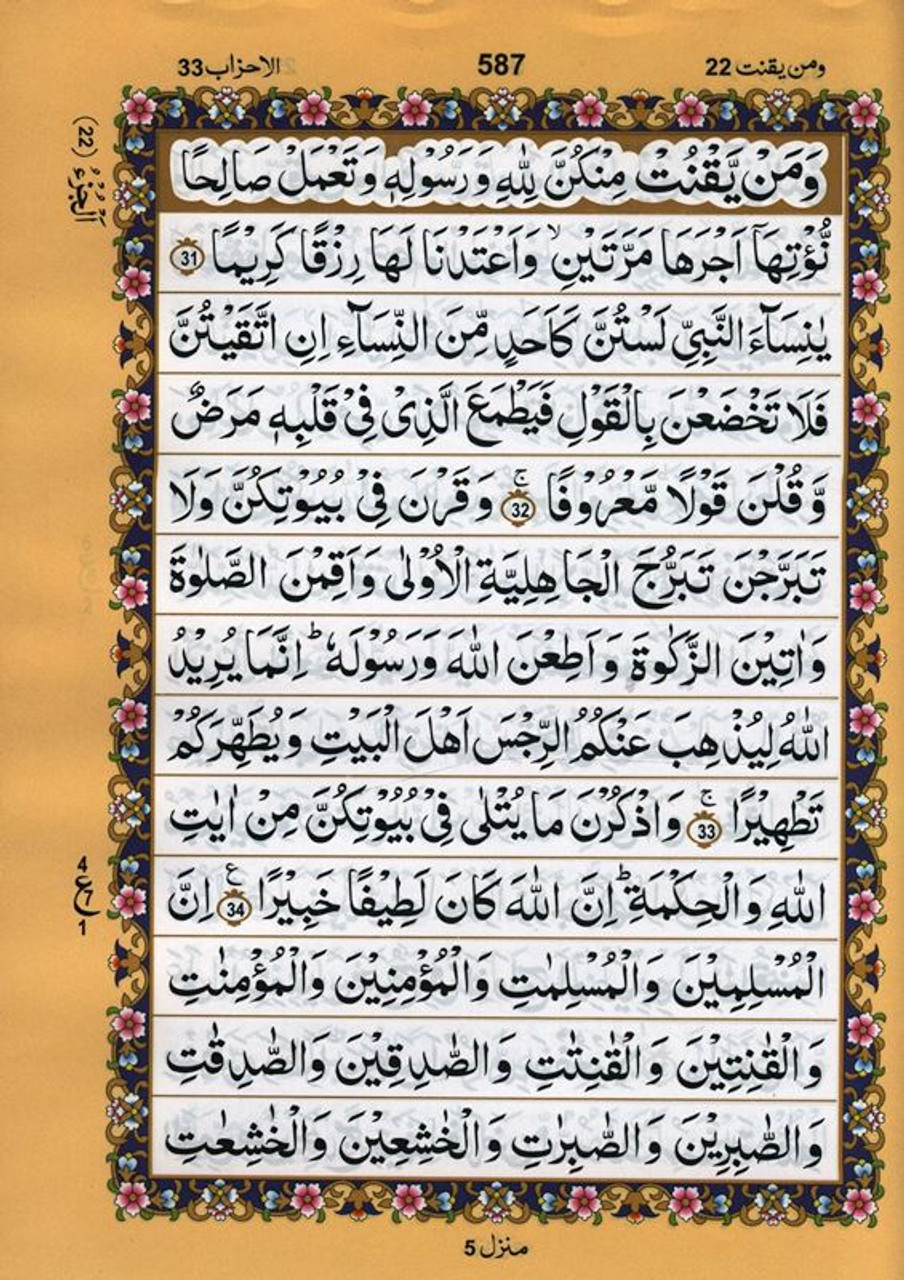 ومن يقنت 22 587 الاحزاب 33
الْجُزْءُ (22)
وَمَنْ يَّقْنُتْ مِنْكُنَّ لِلّٰهِ وَرَسُوْلِهٖ وَتَعْمَلْ صَالِحًا
نُّؤْتِهَاۤ اَجْرَهَا مَرَّتَيْنِ ۙ وَاَعْتَدْنَا لَهَا رِزْقًا كَرِيْمًا 31
يٰنِسَآءَ النَّبِيِّ لَسْتُنَّ كَاَحَدٍ مِّنَ النِّسَآءِ اِنِ اتَّقَيْتُنَّ
فَلَا تَخْضَعْنَ بِالْقَوْلِ فَيَطْمَعَ الَّذِيْ فِيْ قَلْبِهٖ مَرَضٌ
وَّقُلْنَ قَوْلًا مَّعْرُوْفًا ۚ 32 وَقَرْنَ فِيْ بُيُوْتِكُنَّ وَلَا
تَبَرَّجْنَ تَبَرُّجَ الْجَاهِلِيَّةِ الْاُوْلٰى وَاَقِمْنَ الصَّلٰوةَ
وَاٰتِيْنَ الزَّكٰوةَ وَاَطِعْنَ اللّٰهَ وَرَسُوْلَهٗ ؕ اِنَّمَا يُرِيْدُ
اللّٰهُ لِيُذْهِبَ عَنْكُمُ الرِّجْسَ اَهْلَ الْبَيْتِ وَيُطَهِّرَكُمْ
تَطْهِيْرًا ۚ 33 وَاذْكُرْنَ مَا يُتْلٰى فِيْ بُيُوْتِكُنَّ مِنْ اٰيٰتِ
اللّٰهِ وَالْحِكْمَةِ ؕ اِنَّ اللّٰهَ كَانَ لَطِيْفًا خَبِيْرًا ع 34 اِنَّ
4
ع 7
1
الْمُسْلِمِيْنَ وَالْمُسْلِمٰتِ وَالْمُؤْمِنِيْنَ وَالْمُؤْمِنٰتِ
وَالْقٰنِتِيْنَ وَالْقٰنِتٰتِ وَالصّٰدِقِيْنَ وَالصّٰدِقٰتِ
وَالصّٰبِرِيْنَ وَالصّٰبِرٰتِ وَالْخٰشِعِيْنَ وَالْخٰشِعٰتِ
منزل 5